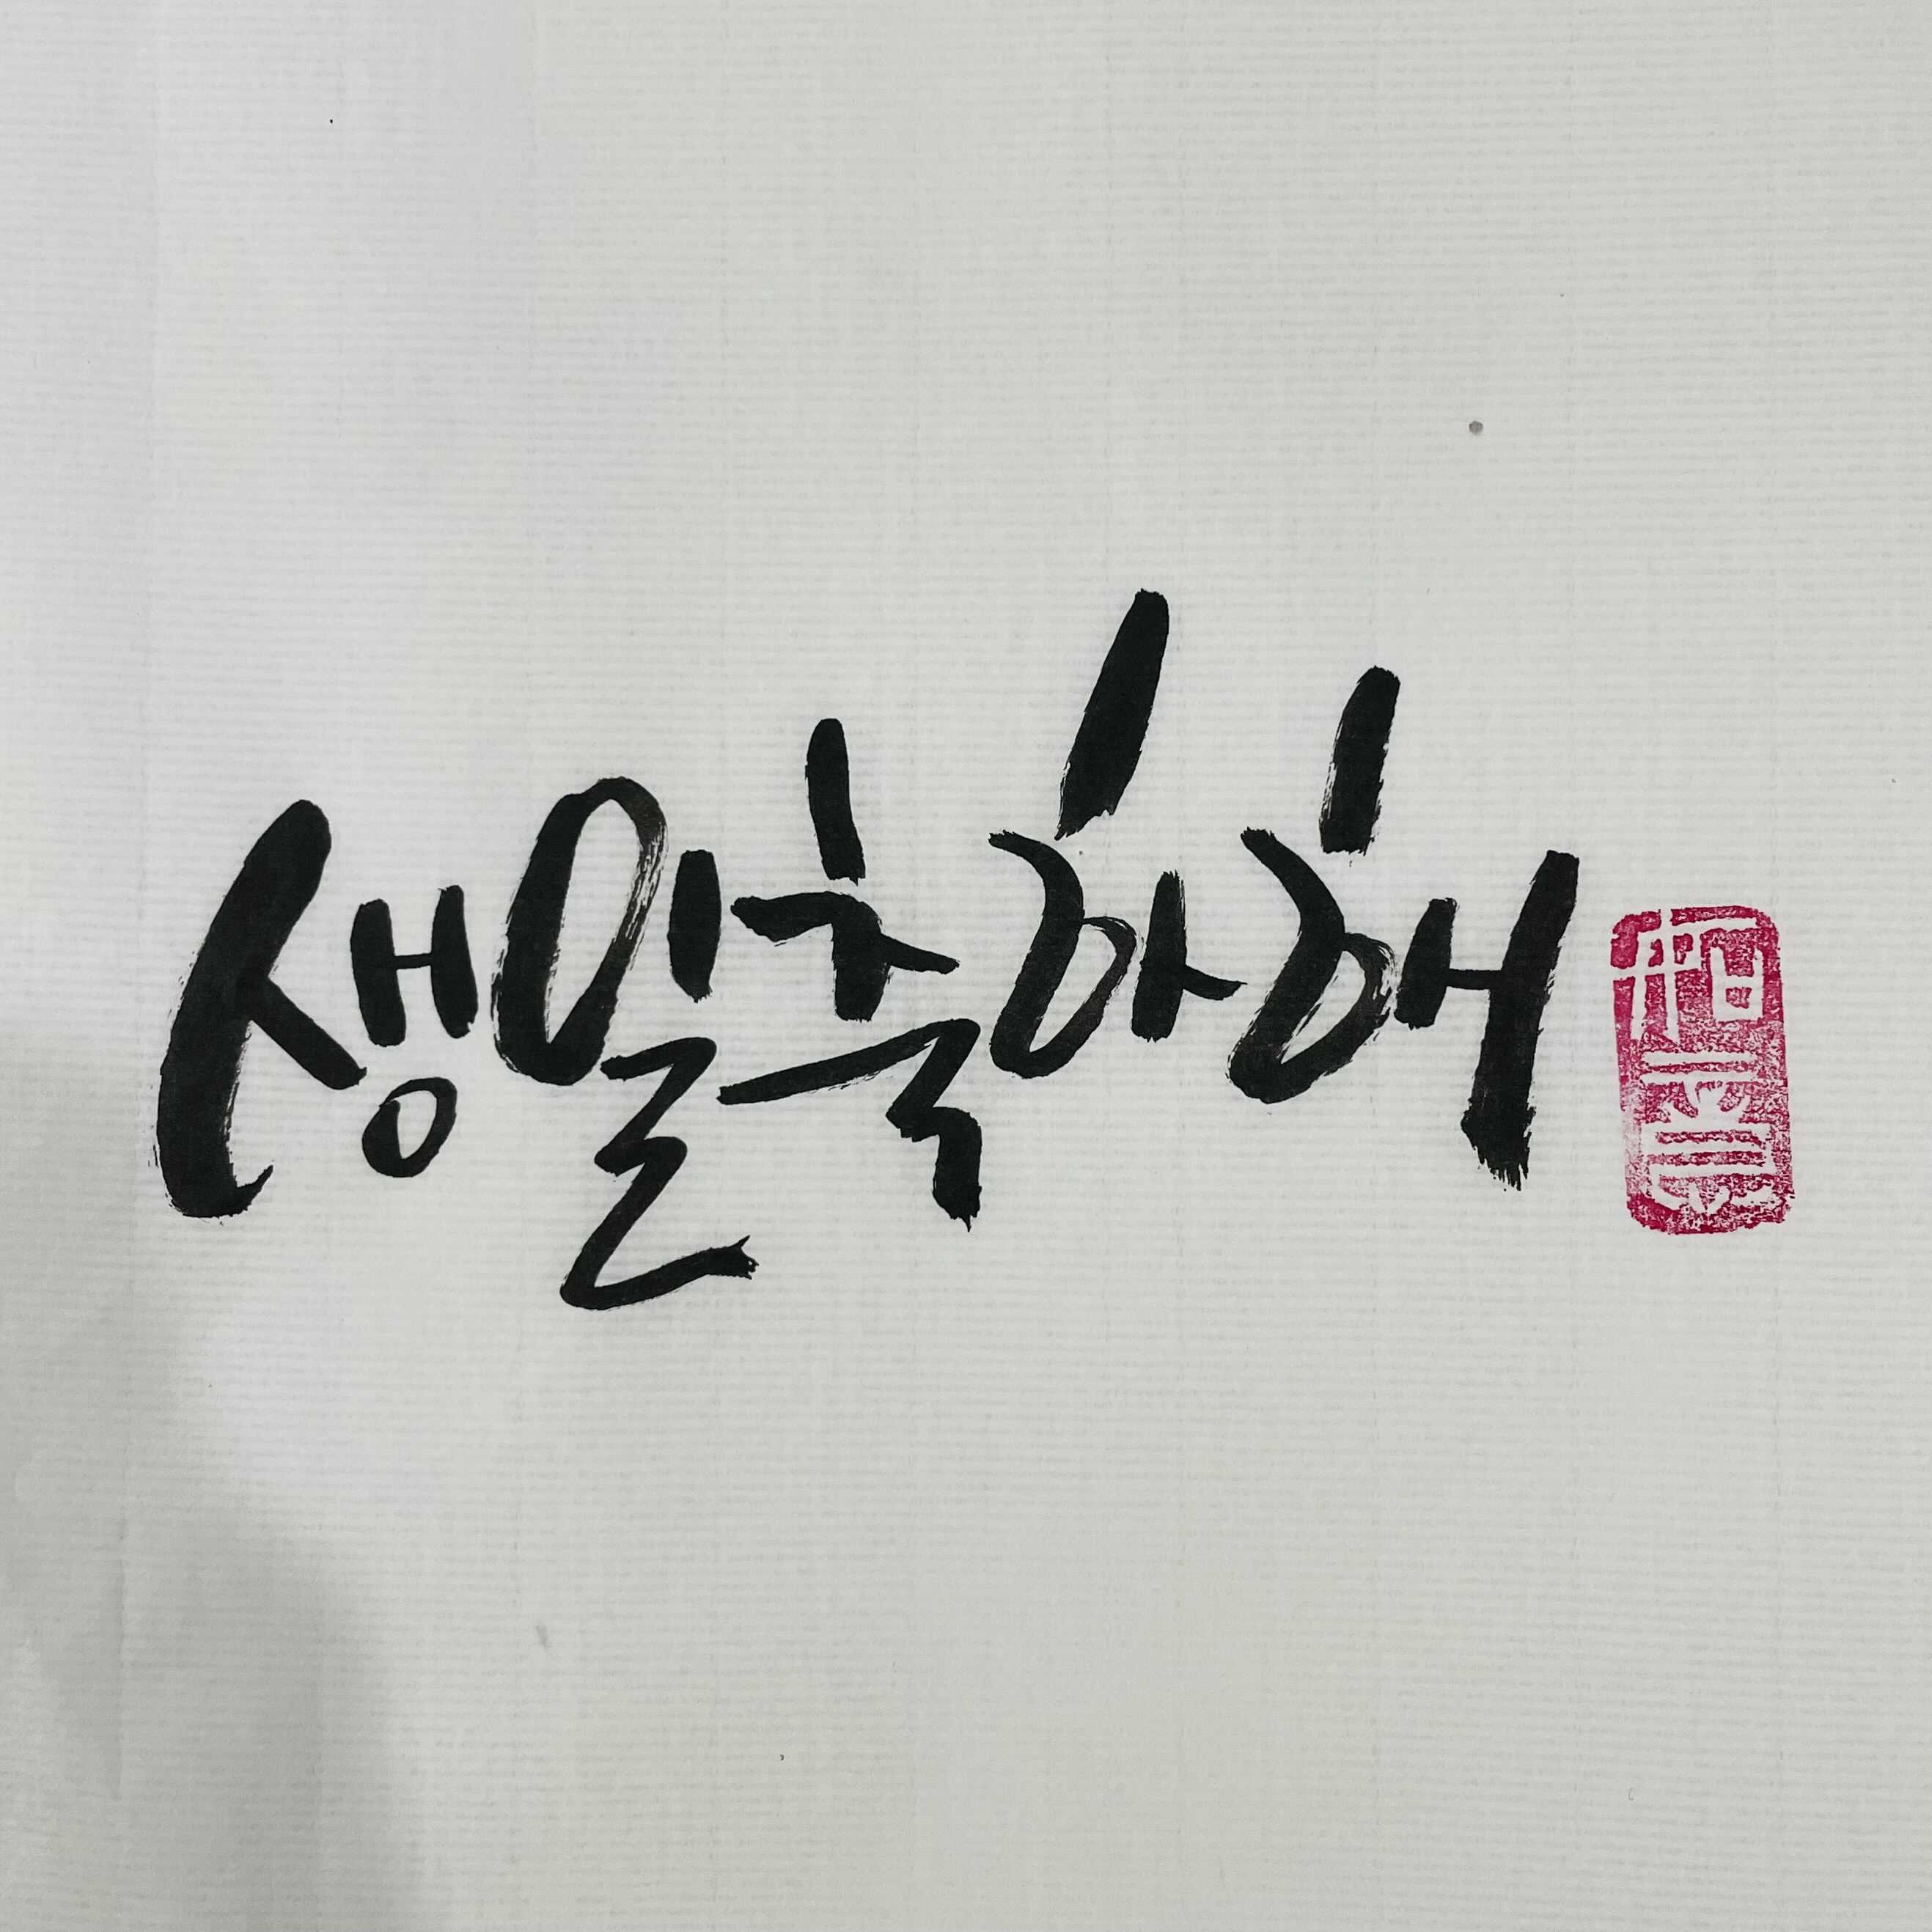 생일축하해